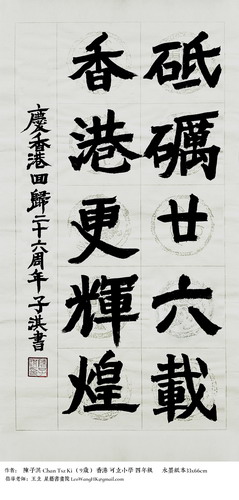 砥礪廿六載
香港更輝煌
慶香港回歸二十六周年子淇書
作者： 陳子淇 Chan Tsz Ki （9歲） 香港 可立小學 四年級 水墨紙本33x66cm
指導老師：王立 星藝書畫院 LeoWangHK@gmail.com